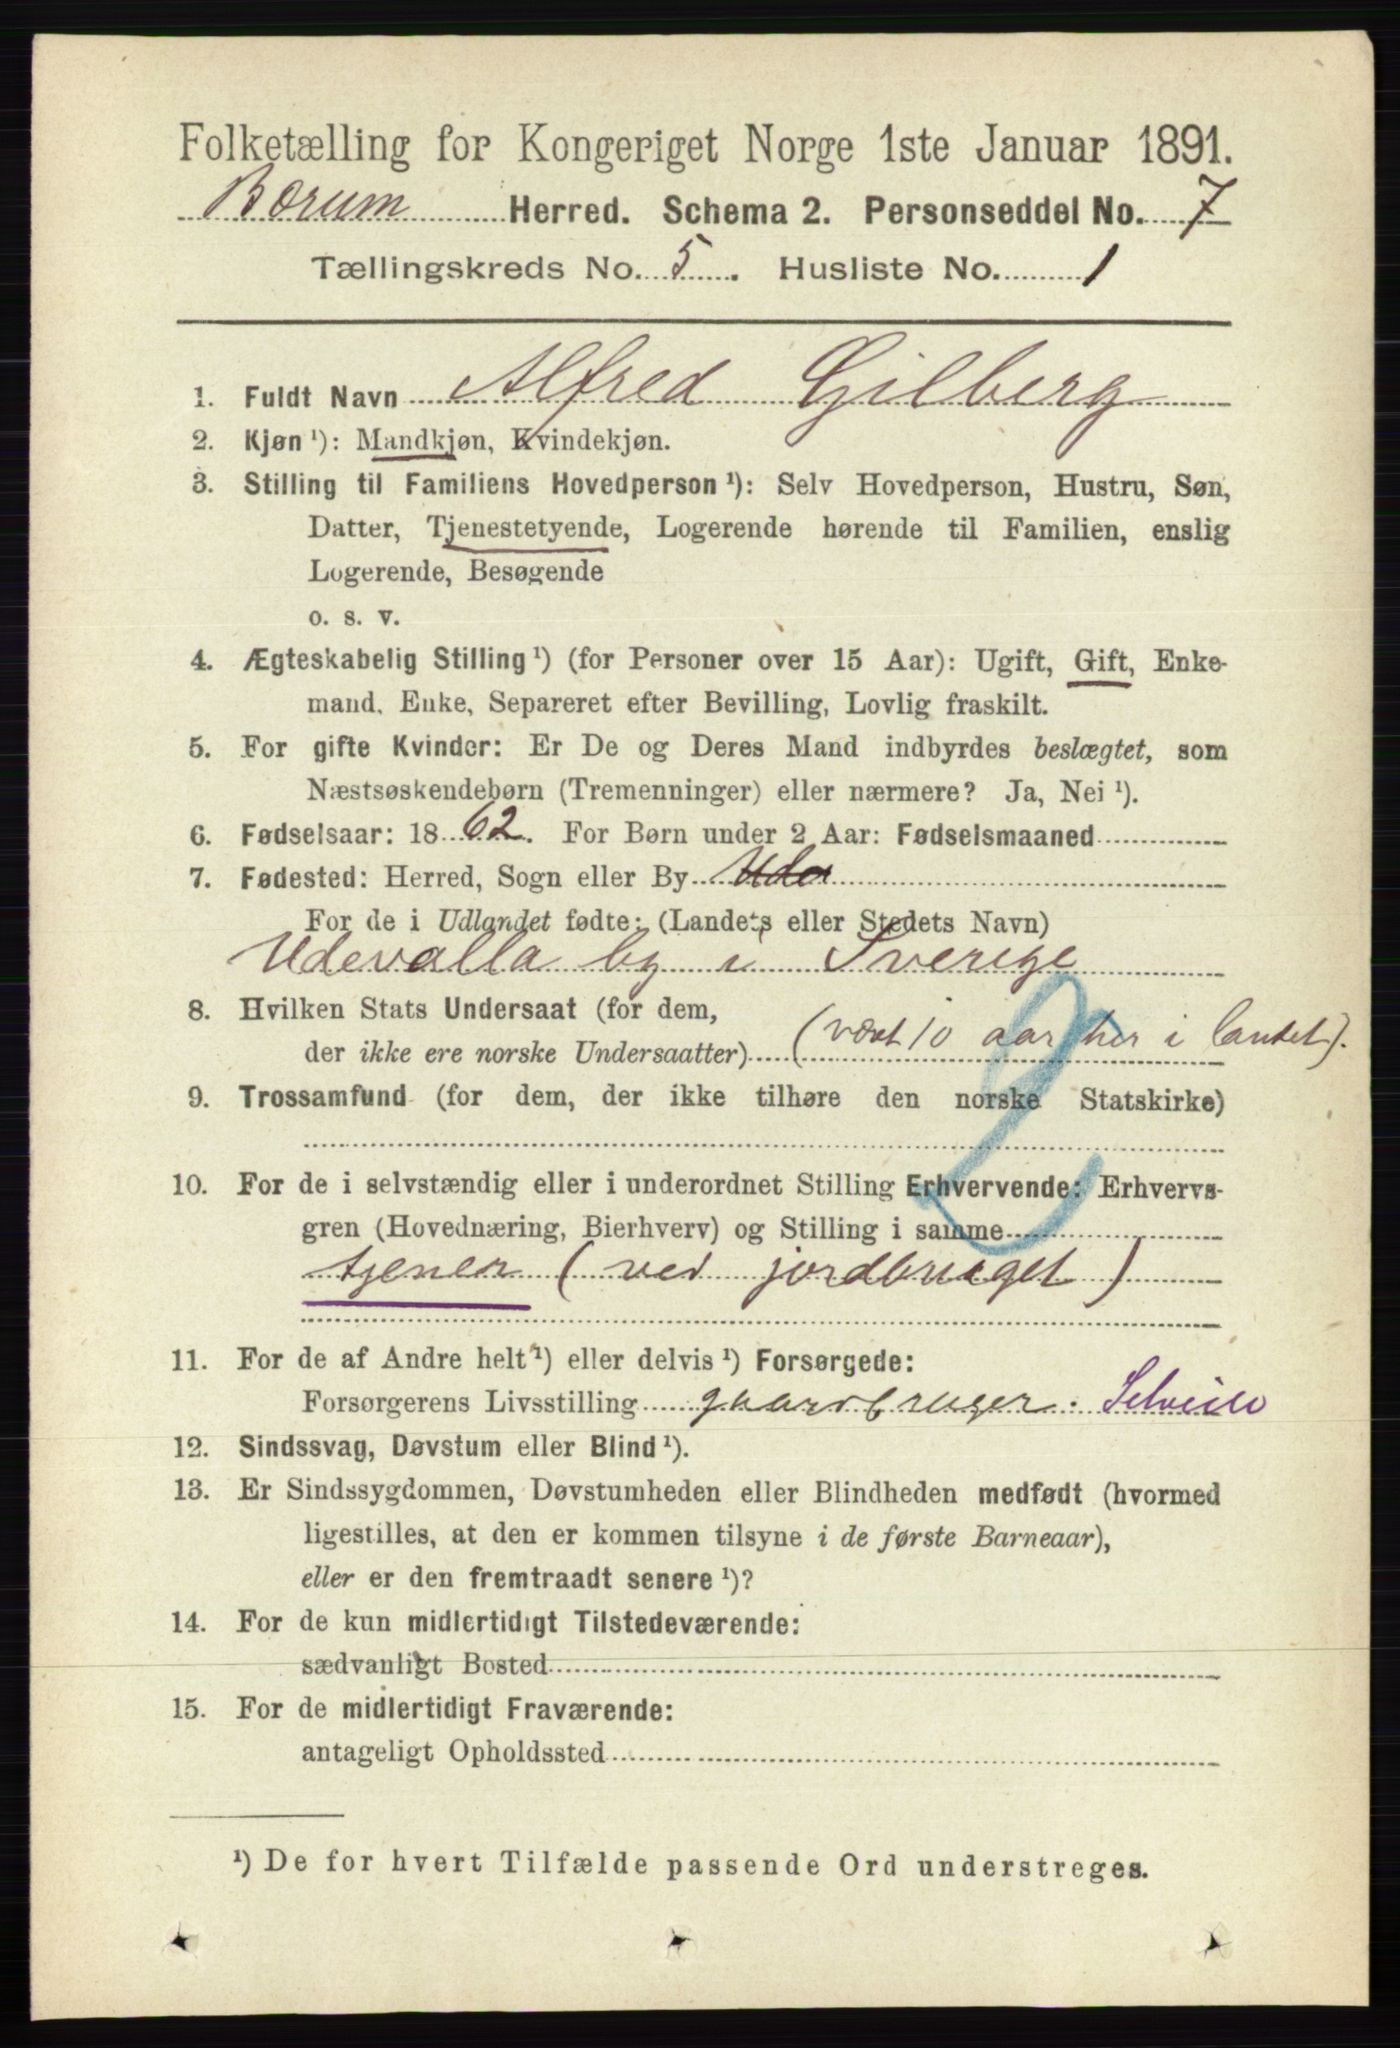 Folketælling for Kongeriget Norge 1ste Januar 1891.
Bærum Herred. Schema 2. Personseddel No. 7
Tællingskreds No. 5. Husliste No. 1
1. Fuldt Navn Alfred Gilberg
2. Kjøn ¹): Mandkjøn, Kvindekjøn.
3. Stilling til Familiens Hovedperson ¹): Selv Hovedperson, Hustru, Søn,
Datter, Tjenestetyende, Logerende hørende til Familien, enslig
Logerende, Besøgende
o. s. v.
4. Ægteskabelig Stilling ¹) (for Personer over 15 Aar): Ugift, Gift, Enke-
mand, Enke, Separeret efter Bevilling, Lovlig fraskilt.
5. For gifte Kvinder: Er De og Deres Mand indbyrdes beslægtet, som
Næstsøskendebørn (Tremenninger) eller nærmere? Ja, Nei ¹).
6. Fødselsaar: 1862. For Børn under 2 Aar: Fødselsmaaned
7. Fødested: Herred, Sogn eller By
For de i Udlandet fødte: (Landets eller Stedets Navn)
Udevalla by i Sverige
8. Hvilken Stats Undersaat (for dem,
der ikke ere norske Undersaatter) (vært 10 aar her i landet).
9. Trossamfund (for dem, der ikke tilhøre den norske Statskirke)
10. For de i selvstændig eller i underordnet Stilling Erhvervende: Erhvervs-
gren (Hovednæring, Bierhverv) og Stilling i samme
tjener (ved jordbruget)
11. For de af Andre helt ¹) eller delvis ¹) Forsørgede:
Forsørgerens Livsstilling gaardbruger. Selveier
12. Sindssvag, Døvstum eller Blind ¹).
13. Er Sindssygdommen, Døvstumheden eller Blindheden medfødt (hvormed
ligestilles, at den er kommen tilsyne i de første Barneaar),
eller er den fremtraadt senere ¹)?
14. For de kun midlertidigt Tilstedeværende:
sædvanligt Bosted
15. For de midlertidigt Fraværende:
antageligt Opholdssted
¹) De for hvert Tilfælde passende Ord understreges.